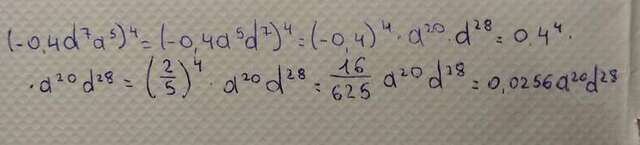 (-0,4d⁷a⁵)⁴=(-0,4a⁵d⁷)⁴=(-0,4)⁴·a²⁰·d²⁸=0.4⁴·
·a²⁰d²⁸=(2/5)⁴·a²⁰d²⁸=16/625 a²⁰d²⁸=0,0256a²⁰d²⁸